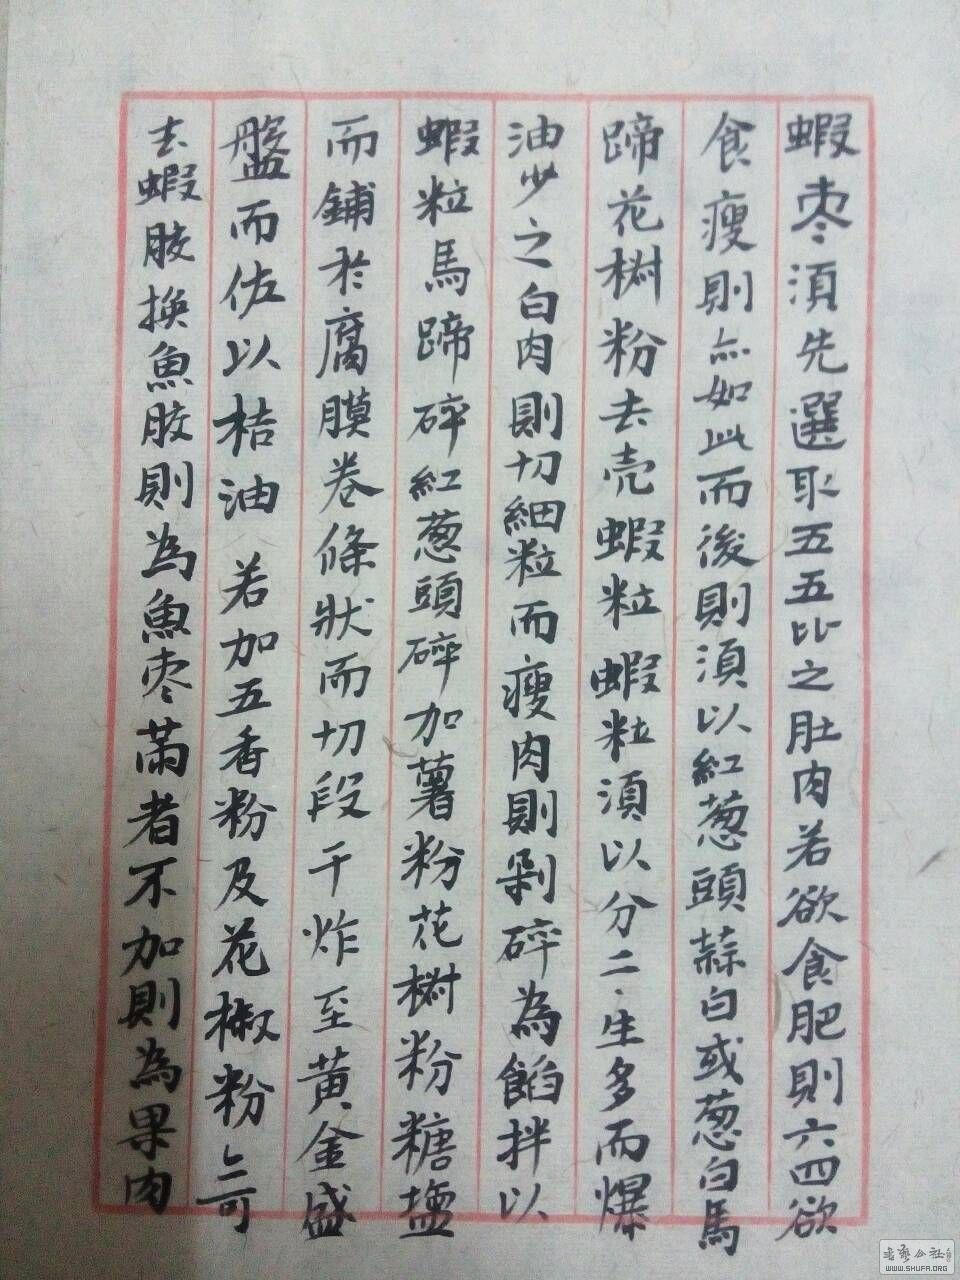 蝦枣須先選取五五比之肚肉若欲食肥則六四欲
食瘦則亦如此而後則須以紅葱頭蒜白或葱白馬
蹄花樹粉去壳蝦粒蝦粒須以分二生多而爆
油少之白肉則切細粒而瘦肉則剁碎為餡拌以
蝦粒馬蹄碎紅葱頭碎加薯粉花樹粉糖塩
而鋪於腐膜卷條狀而切段干炸至黄金盛
盤而佐以桔油若加五香粉及花椒粉亦可
去蝦胶換魚胶則為魚枣葷者不加則為果肉
WWW.SHUFA.ORG